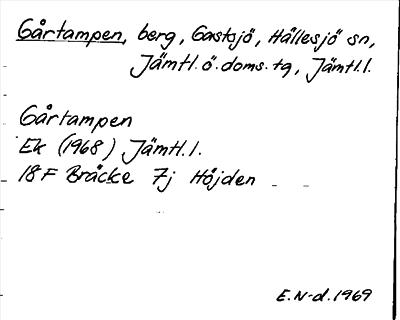 Gårtampen, berg, Gastsjö, Hällesjö sn,
Jämtl.ö.doms.tg, Jämtl.l.
Gårtampen
Ek (1968) Jämtl.l.
18F Bräcke 7j Höjden
E.N-d.1969